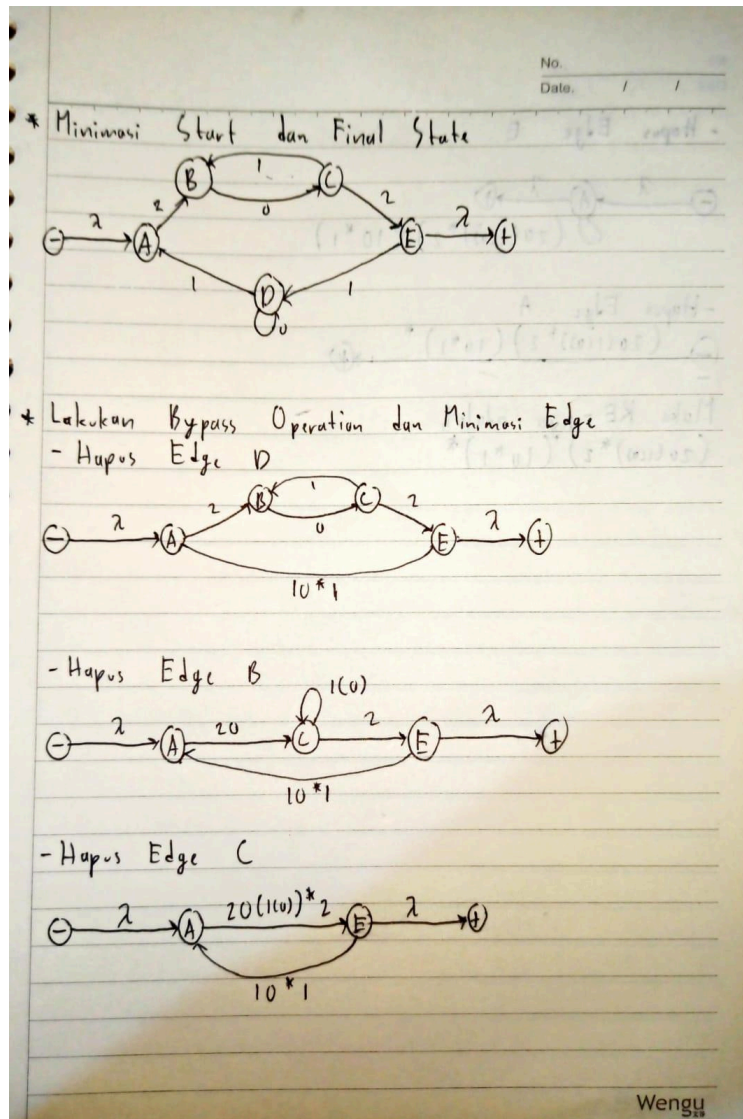 No.
Date. / /
* Minimasi Start dan Final State
1
B C
2 0 2
- λ A E λ +
1 D 1
0
* Lakukan Bypass Operation dan Minimasi Edge
- Hapus Edge D
1
B C
2 0 2
- λ A E λ +
10*1
- Hapus Edge B
1(0)
- λ A 20 C 2 E λ +
10*1
- Hapus Edge C
- λ A 20(1(0))*2 E λ +
10*1
Wengu